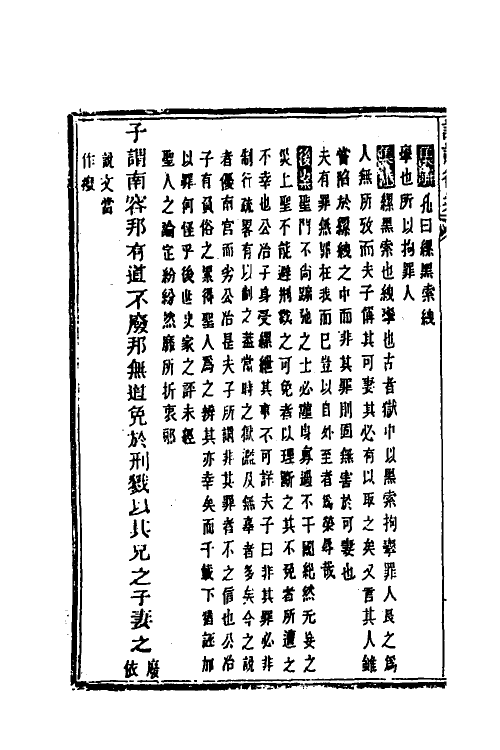 孔曰縲黑索紲
攣也所以拘罪人
縲黑索也紲攣也古者獄中以黑索拘攣罪人長之為
人無所攷而夫子偁其可妻其必有以取之矣又言其人雖
嘗陷於縲紲之中而非其罪則固無害於可妻也
夫有罪無罪在我而已豈以自外至者為榮辱哉
後案聖門不尚跅弛之士必謹身寡過不干國紀然无妄之
災上聖不能避刑戮之可免者以理斷之其不免者所遭之
不幸也公冶子身受縲紲其事不可詳夫子曰非其罪必非
制行疏畧有以制之蓋當時之獄濫及無辜者多矣今之說
者優南宮而劣公冶是夫子所謂非其罪者不之信也公冶
子有負俗之累得聖人為之辨其亦幸矣而千載下猶誣加
以罪何怪乎後世史家之評未經
聖人之論定紛紛然靡所折衷邪
子謂南容邦有道不廢邦無道免於刑戮以其兄之子妻之
廢依
說文當
作癈